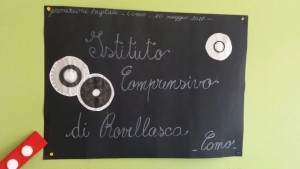 Como - 20 maggio 2018 -
Istituto
Comprensivo
di Rovellasca
- Como -